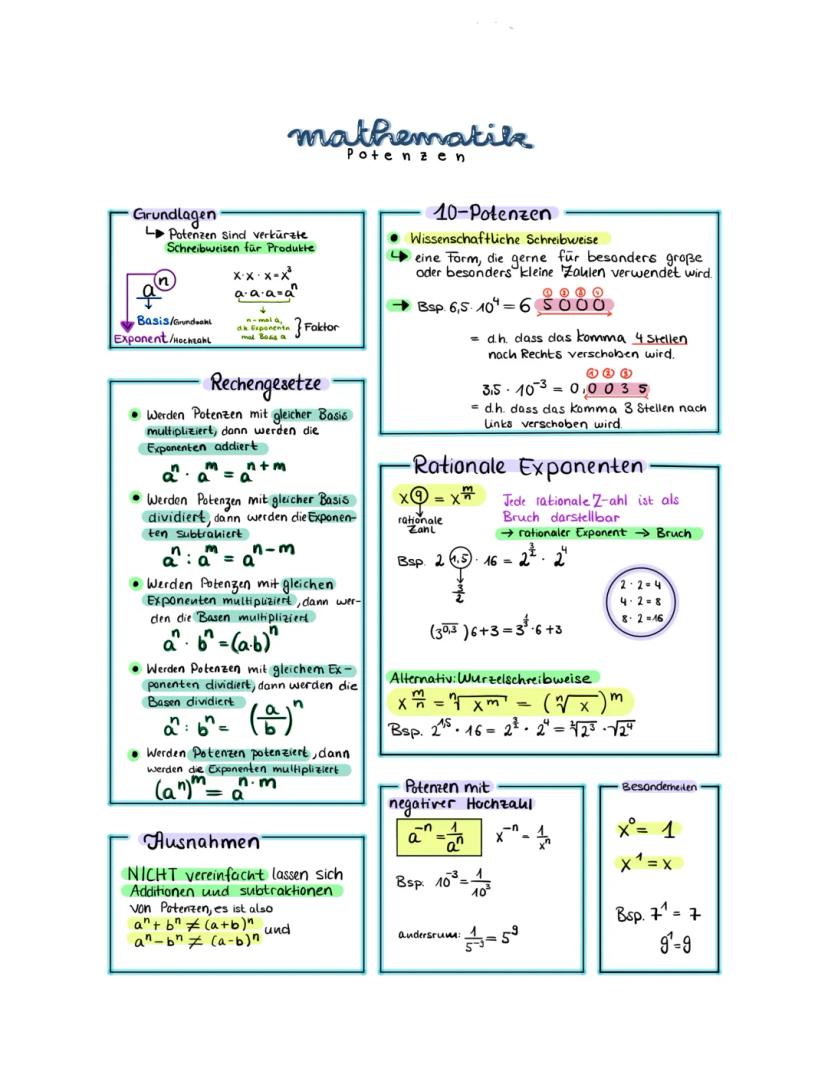 mathematik
Potenzen
Grundlagen
↳ Potenzen sind verkürzte
Schreibweisen für Produkte
aⁿ
x·x·x=x³
a·a·a=aⁿ
Basis/Grundzahl
Exponent/Hochzahl
n-mal a,
d.h. Exponenten
mal Basis a
} Faktor
Rechengesetze
• Werden Potenzen mit gleicher Basis
multipliziert, dann werden die
Exponenten addiert
aⁿ · aᵐ = aⁿ⁺ᵐ
• Werden Potenzen mit gleicher Basis
dividiert, dann werden die Exponen-
ten subtrahiert
aⁿ : aᵐ = aⁿ⁻ᵐ
• Werden Potenzen mit gleichen
Exponenten multipliziert, dann wer-
den die Basen multipliziert
aⁿ · bⁿ = (a·b)ⁿ
• Werden Potenzen mit gleichem Ex-
ponenten dividiert, dann werden die
Basen dividiert
aⁿ : bⁿ = (a/b)ⁿ
• Werden Potenzen potenziert, dann
werden die Exponenten multipliziert
(aⁿ)ᵐ = aⁿ·ᵐ
Ausnahmen
NICHT vereinfacht lassen sich
Additionen und subtraktionen
von Potenzen, es ist also
aⁿ + bⁿ ≠ (a+b)ⁿ und
aⁿ - bⁿ ≠ (a-b)ⁿ
10-Potenzen
• Wissenschaftliche Schreibweise
↳ eine Form, die gerne für besonders große
oder besonders kleine Zahlen verwendet wird.
① ② ③ ④
→ Bsp. 6,5 · 10⁴ = 6 5000
= d.h. dass das komma 4 Stellen
nach Rechts verschoben wird.
① ② ③
3,5 · 10⁻³ = 0,0035
= d.h. dass das Komma 3 Stellen nach
Links verschoben wird.
Rationale Exponenten
x^q = x^(m/n)
rationale
Zahl
Jede rationale Z-ahl ist als
Bruch darstellbar
→ rationaler Exponent → Bruch
Bsp. 2^1,5 · 16 = 2^(3/2) · 2⁴
3/2
2·2=4
4·2=8
8·2=16
(3^0,3̅)6+3 = 3^(1/3)·6+3
Alternativ: Wurzelschreibweise
x^(m/n) = ⁿ√xᵐ = (ⁿ√x)ᵐ
Bsp. 2^1,5 · 16 = 2^(3/2) · 2⁴ = ²√2³ · √2⁴
Potenzen mit
negativer Hochzahl
a⁻ⁿ = 1/aⁿ
x⁻ⁿ = 1/xⁿ
Bsp. 10⁻³ = 1/10³
andersrum: 1/5⁻⁹ = 5⁹
Besonderheiten
x⁰ = 1
x¹ = x
Bsp. 7¹ = 7
9¹=9